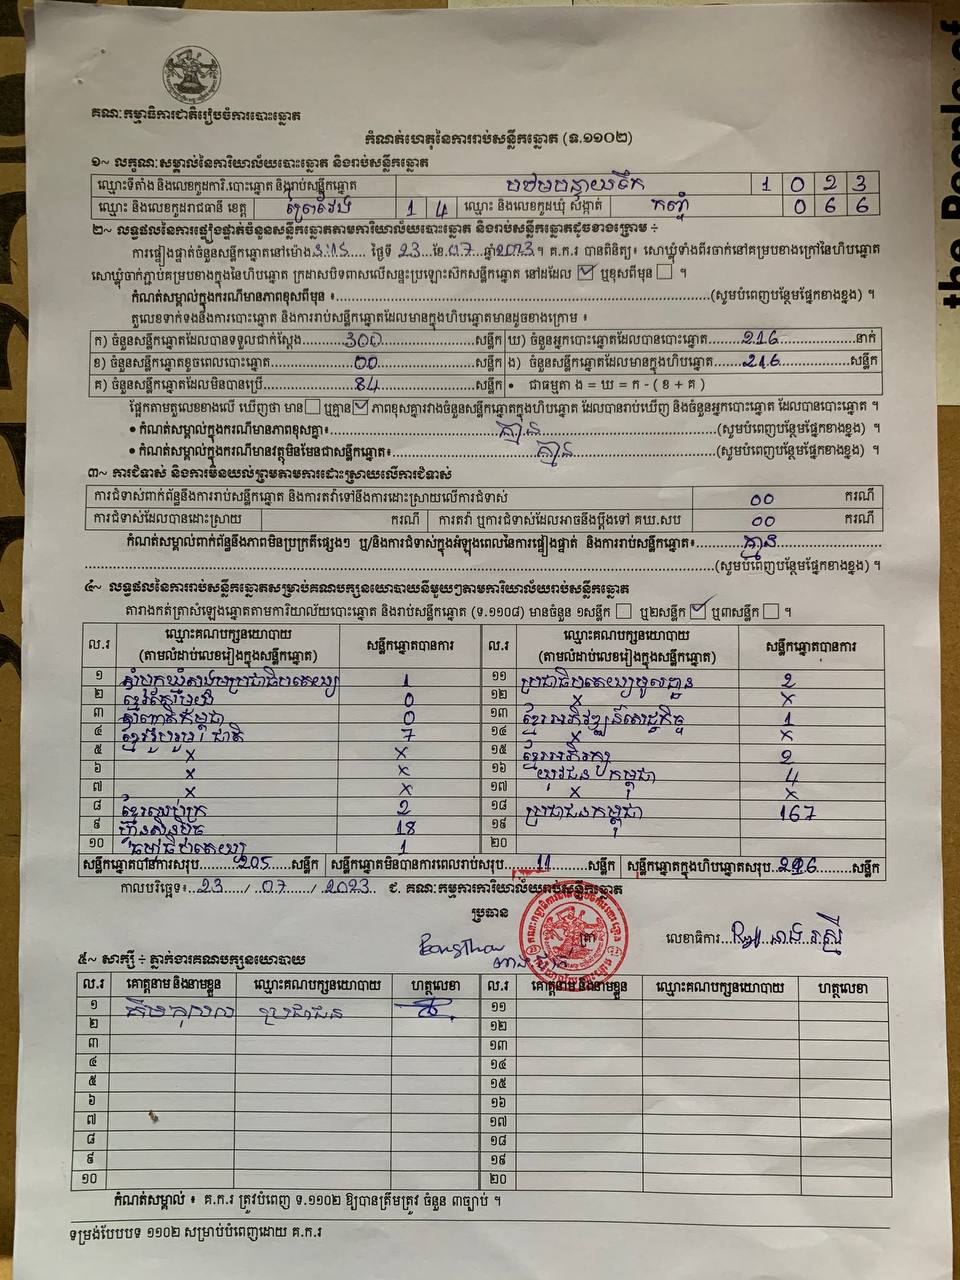 គណៈកម្មាធិការជាតិរៀបចំការបោះឆ្នោត
កំណត់ហេតុនៃការរាប់សន្លឹកឆ្នោត (ទ.១១០២)
១~ លក្ខណៈសម្គាល់នៃការិយាល័យបោះឆ្នោត និងរាប់សន្លឹកឆ្នោត
ឈ្មោះទីតាំង និងលេខកូដការិ.បោះឆ្នោត និងរាប់សន្លឹកឆ្នោត 1 0 2 3
ឈ្មោះ និងលេខកូដរាជធានី ខេត្ត ព្រៃវែង 1 4 ឈ្មោះ និងលេខកូដឃុំ សង្កាត់ 0 6 6
២~ លទ្ធផលនៃការផ្ទៀងផ្ទាត់ចំនួនសន្លឹកឆ្នោតតាមការិយាល័យបោះឆ្នោត និងរាប់សន្លឹកឆ្នោតដូចខាងក្រោម ÷
ការផ្ទៀងផ្ទាត់ចំនួនសន្លឹកឆ្នោតនៅម៉ោង 3:15 ថ្ងៃទី 23 ខែ 07 ឆ្នាំ 2023 ។ គ.ក.រ បានពិនិត្យ៖ សោឃ្លុំទាំងពីរចាក់នៅគម្របខាងក្រៅនៃហិបឆ្នោត
សោឃ្លុំចាក់ភ្ជាប់គម្របខាងក្នុងនៃហិបឆ្នោត ក្រដាសបិទពាសលើសន្ទះប្រឡោះស៊កសន្លឹកឆ្នោត នៅដដែល ☑ ឬខុសពីមុន ☐ ។
កំណត់សម្គាល់ក្នុងករណីមានភាពខុសពីមុន ៖ (សូមបំពេញបន្ថែមផ្នែកខាងខ្នង) ។
តួលេខទាក់ទងនឹងការបោះឆ្នោត និងការរាប់សន្លឹកឆ្នោតដែលមានក្នុងហិបឆ្នោតមានដូចខាងក្រោម ៖
ក) ចំនួនសន្លឹកឆ្នោតដែលបានទទួលជាក់ស្តែង 300 សន្លឹក ឃ) ចំនួនអ្នកបោះឆ្នោតដែលបានបោះឆ្នោត 216 នាក់
ខ) ចំនួនសន្លឹកឆ្នោតខូចពេលបោះឆ្នោត 00 សន្លឹក ង) ចំនួនសន្លឹកឆ្នោតដែលមានក្នុងហិបឆ្នោត 216 សន្លឹក
គ) ចំនួនសន្លឹកឆ្នោតដែលមិនបានប្រើ 84 សន្លឹក • ជាធម្មតា ង = ឃ = ក - ( ខ + គ )
ផ្អែកតាមតួលេខខាងលើ ឃើញថា មាន ☐ ឬគ្មាន ☑ ភាពខុសគ្នារវាងចំនួនសន្លឹកឆ្នោតក្នុងហិបឆ្នោត ដែលបានរាប់ឃើញ និងចំនួនអ្នកបោះឆ្នោត ដែលបានបោះឆ្នោត ។
• កំណត់សម្គាល់ក្នុងករណីមានភាពខុសគ្នា៖ គ្មាន (សូមបំពេញបន្ថែមផ្នែកខាងខ្នង) ។
• កំណត់សម្គាល់ក្នុងករណីមានវត្ថុមិនមែនជាសន្លឹកឆ្នោត៖ គ្មាន (សូមបំពេញបន្ថែមផ្នែកខាងខ្នង) ។
៣~ ការជំទាស់ និងការមិនយល់ព្រមតាមការដោះស្រាយលើការជំទាស់
ការជំទាស់ពាក់ព័ន្ធនឹងការរាប់សន្លឹកឆ្នោត និងការតវ៉ាទៅនឹងការដោះស្រាយលើការជំទាស់ 00 ករណី
ការជំទាស់ដែលបានដោះស្រាយ ករណី ការតវ៉ា ឬការជំទាស់ដែលអាចនឹងប្តឹងទៅ គឃ.សប 00 ករណី
កំណត់សម្គាល់ពាក់ព័ន្ធនឹងភាពមិនប្រក្រតីផ្សេងៗ ឬ/និងការជំទាស់ក្នុងអំឡុងពេលនៃការផ្ទៀងផ្ទាត់ និងការរាប់សន្លឹកឆ្នោត៖ គ្មាន
(សូមបំពេញបន្ថែមផ្នែកខាងខ្នង) ។
៤~ លទ្ធផលនៃការរាប់សន្លឹកឆ្នោតសម្រាប់គណបក្សនយោបាយនីមួយៗតាមការិយាល័យរាប់សន្លឹកឆ្នោត
តារាងកត់ត្រាសំឡេងឆ្នោតតាមការិយាល័យបោះឆ្នោត និងរាប់សន្លឹកឆ្នោត (ទ.១១០៨) មានចំនួន ១សន្លឹក ☐ ឬ២សន្លឹក ☑ ឬ៣សន្លឹក ☐ ។
ល.រ ឈ្មោះគណបក្សនយោបាយ (តាមលំដាប់លេខរៀងក្នុងសន្លឹកឆ្នោត) សន្លឹកឆ្នោតបានការ ល.រ ឈ្មោះគណបក្សនយោបាយ (តាមលំដាប់លេខរៀងក្នុងសន្លឹកឆ្នោត) សន្លឹកឆ្នោតបានការ
១ 1 ១១ ប្រជាធិបតេយ្យមូលដ្ឋាន 2
២ 0 ១២ x x
៣ 0 ១៣ ខ្មែរអភិវឌ្ឍន៍សេដ្ឋកិច្ច 1
៤ ខ្មែររួបរួមជាតិ 7 ១៤ x x
៥ x x ១៥ ខ្មែរអភិរក្ស 2
៦ x x ១៦ យុវជនកម្ពុជា 4
៧ x x ១៧ x x
៨ 2 ១៨ ប្រជាជនកម្ពុជា 167
៩ ហ៊្វុនស៊ិនប៉ិច 18 ១៩
១០ ធម្មាធិបតេយ្យ 1 ២០
សន្លឹកឆ្នោតបានការសរុប 205 សន្លឹក សន្លឹកឆ្នោតមិនបានការពេលរាប់សរុប 11 សន្លឹក សន្លឹកឆ្នោតក្នុងហិបឆ្នោតសរុប 216 សន្លឹក
កាលបរិច្ឆេទ៖ 23 / 07 / 2023 ជ. គណៈកម្មការការិយាល័យរាប់សន្លឹកឆ្នោត
ប្រធាន ត្រា លេខាធិការ
៥~ សាក្សី ÷ ភ្នាក់ងារគណបក្សនយោបាយ
ល.រ គោត្តនាម និងនាមខ្លួន ឈ្មោះគណបក្សនយោបាយ ហត្ថលេខា ល.រ គោត្តនាម និងនាមខ្លួន ឈ្មោះគណបក្សនយោបាយ ហត្ថលេខា
១ ប្រជាជន ១១
២ ១២
៣ ១៣
៤ ១៤
៥ ១៥
៦ ១៦
៧ ១៧
៨ ១៨
៩ ១៩
១០ ២០
កំណត់សម្គាល់ ៖ គ.ក.រ ត្រូវបំពេញ ទ.១១០២ ឱ្យបានត្រឹមត្រូវ ចំនួន ៣ច្បាប់ ។
ទម្រង់បែបបទ ១១០២ សម្រាប់បំពេញដោយ គ.ក.រ
the People of